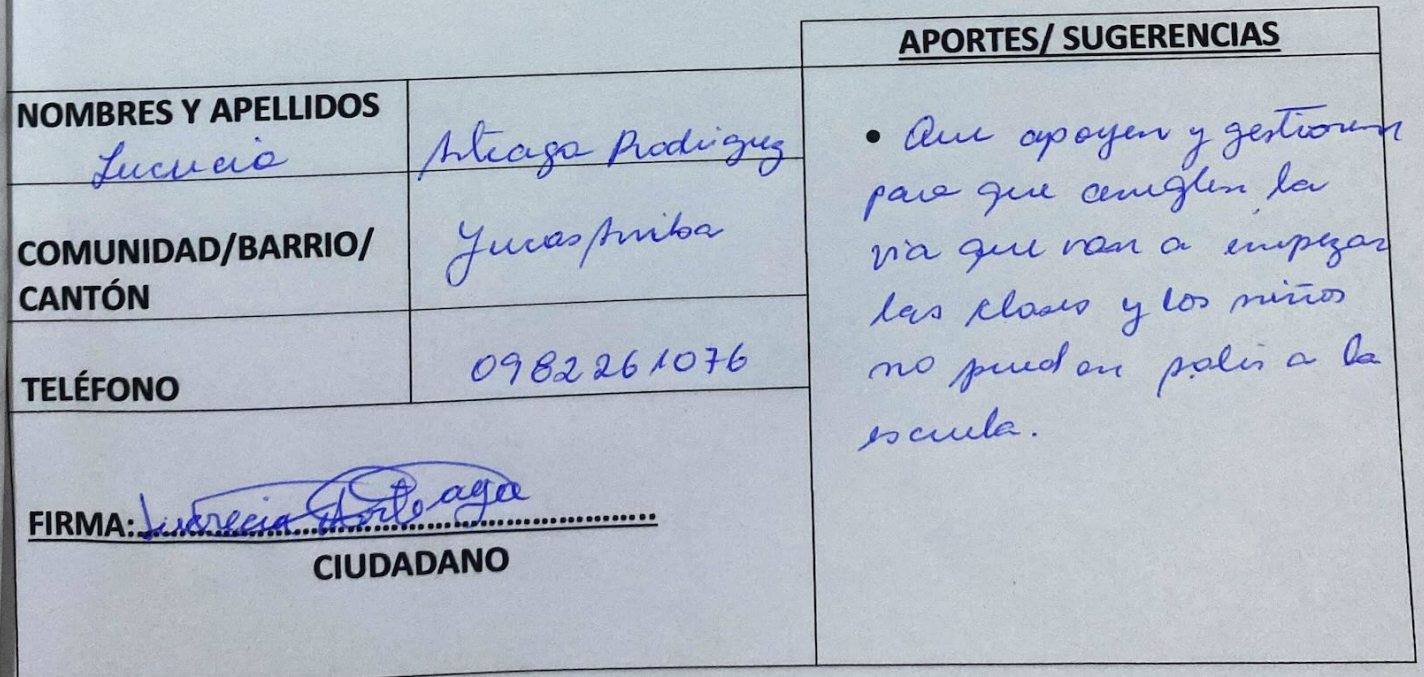 APORTES/ SUGERENCIAS
NOMBRES Y APELLIDOS
Lucrecia Arteaga Rodriguez
COMUNIDAD/BARRIO/
CANTÓN
Yucas Arriba
TELÉFONO
0982261076
FIRMA: Lucrecia Arteaga
CIUDADANO
• Que apoyen y gestionen
para que arreglen la
via que van a empezar
las clases y los niños
no pueden salir a la
escuela.